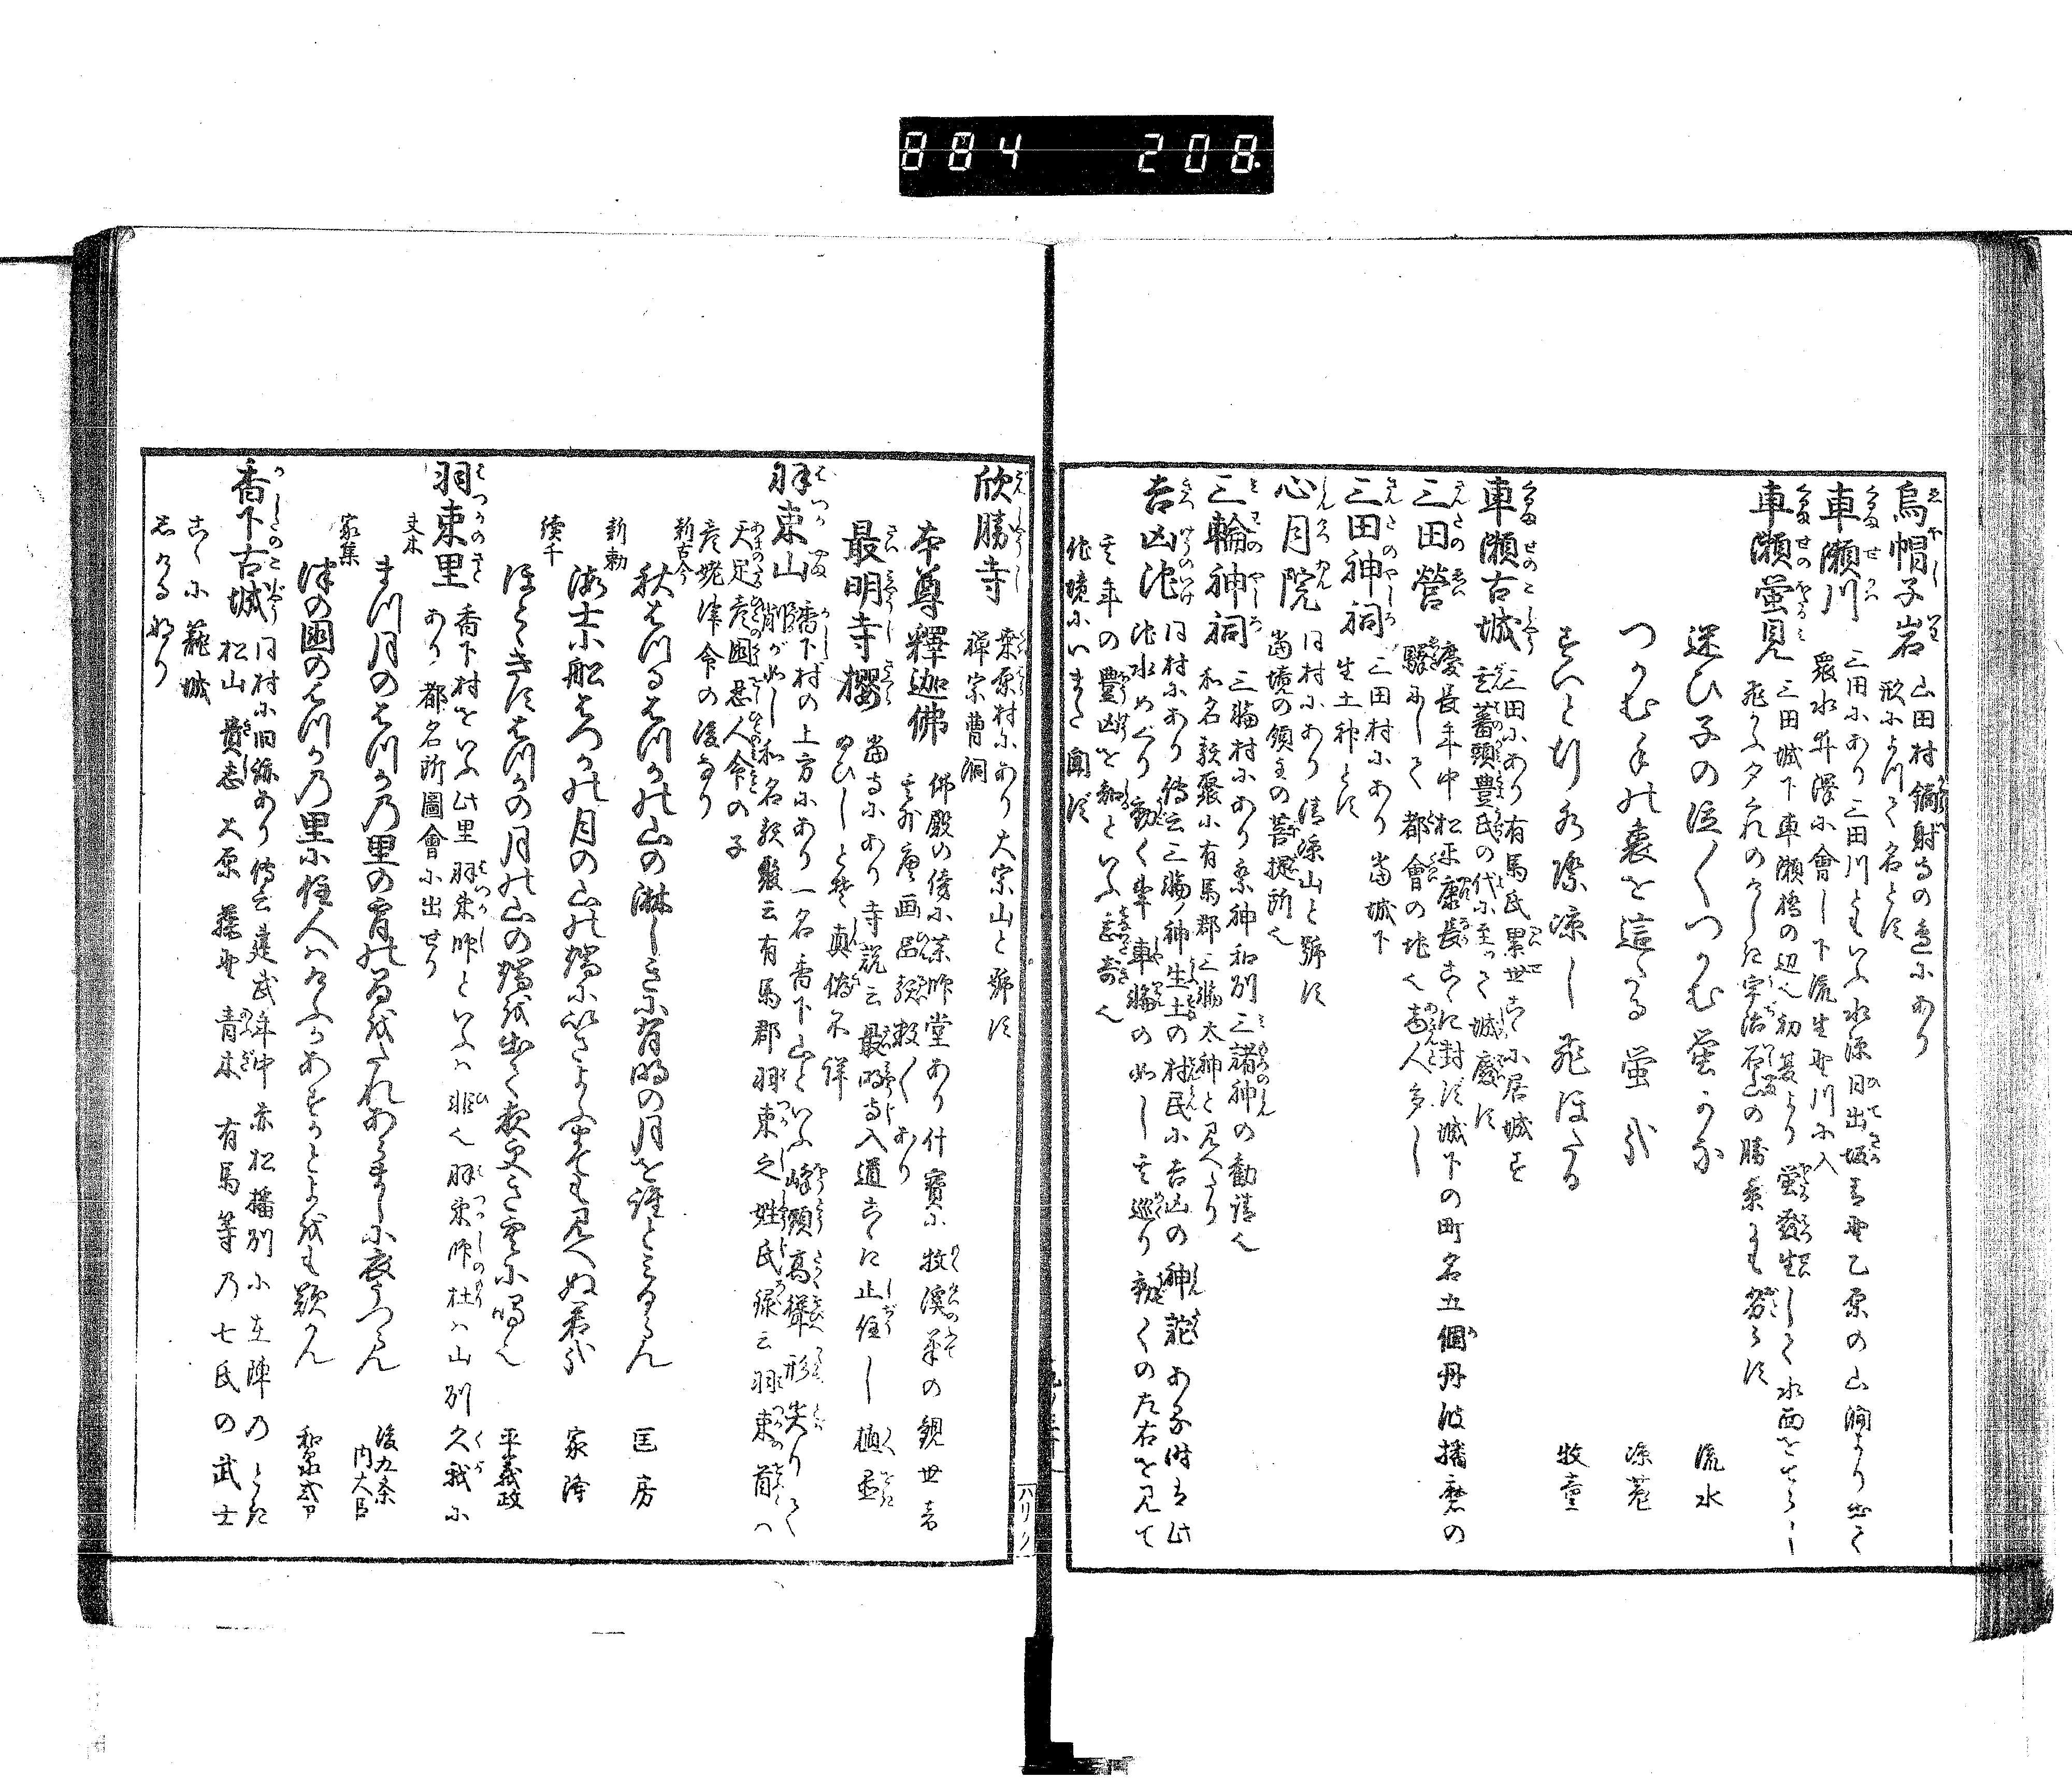 884 208
烏帽子岩 山田村鏑射寺の邊にあり
形によつて名とす
車瀬川 三田にあり三田川ともいふ水源日出坂青野乙原の山澗より出て
衆水并澤に會し下流生野川に入
車瀬螢見 三田城下車瀬橋の辺也初夏より螢數生して水面をてらし
飛かふ夕くれのけしき宇治石山の勝景にも劣らず
迷ひ子の泣く/\つかむ螢かな 流水
つかむ手の裏を這たる螢哉 涼菟
すいと行水際涼し飛ほたる 牧童
車瀬古城 三田にあり有馬氏累世こゝに居城す
玄蕃頭豊氏の代に至つて城廢す
三田營 慶長年中松平康長こゝに封ず城下の町名五個丹波播磨の
驛にして都會の地也商人多し
三田神祠 三田村にあり當城下
生土神とす
心月院 同村にあり清涼山と號す
當境の領主の菩提所也
三輪神祠 三輪村にあり祭神和州三諸神の勸請也
和名類聚に有馬郡三輪大神と見へたり
吉凶池 同村にあり傳云三輪ノ神生土の村民に吉凶の神託ある時は此
池水めぐり動く事車輪の如し其巡り動くの左右を見て
其年の豊凶を知るといふ
他境にいまた聞ず
欣勝寺 桑原村にあり大宗山と號す
禅宗曹洞
本尊釋迦佛 佛殿の傍に茶師堂あり什寶に牧溪筆の觀世音
其外唐画呂類數/\あり
最明寺櫻 當寺にあり寺説云最明寺入道こゝに止住し植置
のひしとぞ真僞不詳
羽束山 香下村の上方にあり一名香下山といふ峰頭高聳形尖りて
削がめし和名類聚云有馬郡羽束之姓氏録云羽束の首は
天足彦國忍人命の子
彦姥津命の後なり
新古今
秋はつるはつかの山の淋しきに有明の月を誰とみるらん 匡房
新勅
海士小船はつかの月の山の端にいさよふまても見へぬ君哉 家隆
續千
ほとゝきすはつかの月の山の端を出て夜更き雲に鳴也 平義政
羽束里 香下村をいふ此里羽束師といふは非也羽束師杜は山州久我に
あり都名所圖會に出せり
夫木
まつ月のはつかの里の宵の間をたれあらましに衣うつらん 後九条内大臣
家集
津の國のはつかの里に住人は 和泉式部
香下古城 同村に旧跡あり傳云建武年中赤松播州に在陣のとき
松山 貴志 大原 藤野 青木 有馬等の七氏の武士
こゝに籠城
しけるなり